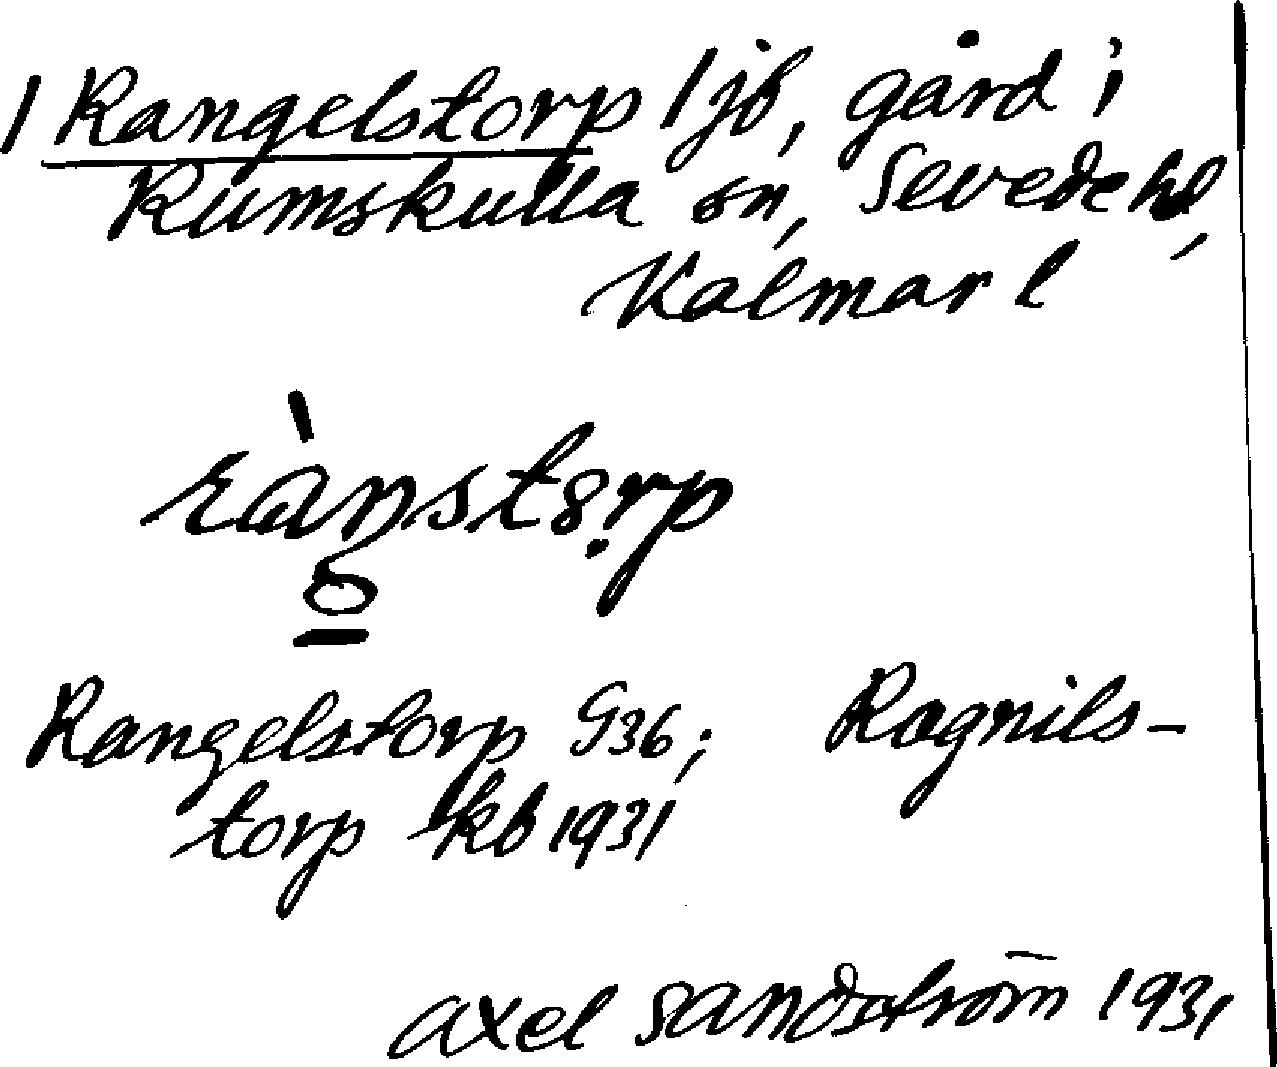 1 Rangelstorp 1 jb, gård i
Rumskulla sn, Sevede hd,
Kalmar l
ràŋstorp
Rangelstorp G36; Ragnils-
torp kb 1931
Axel Sandström 1931